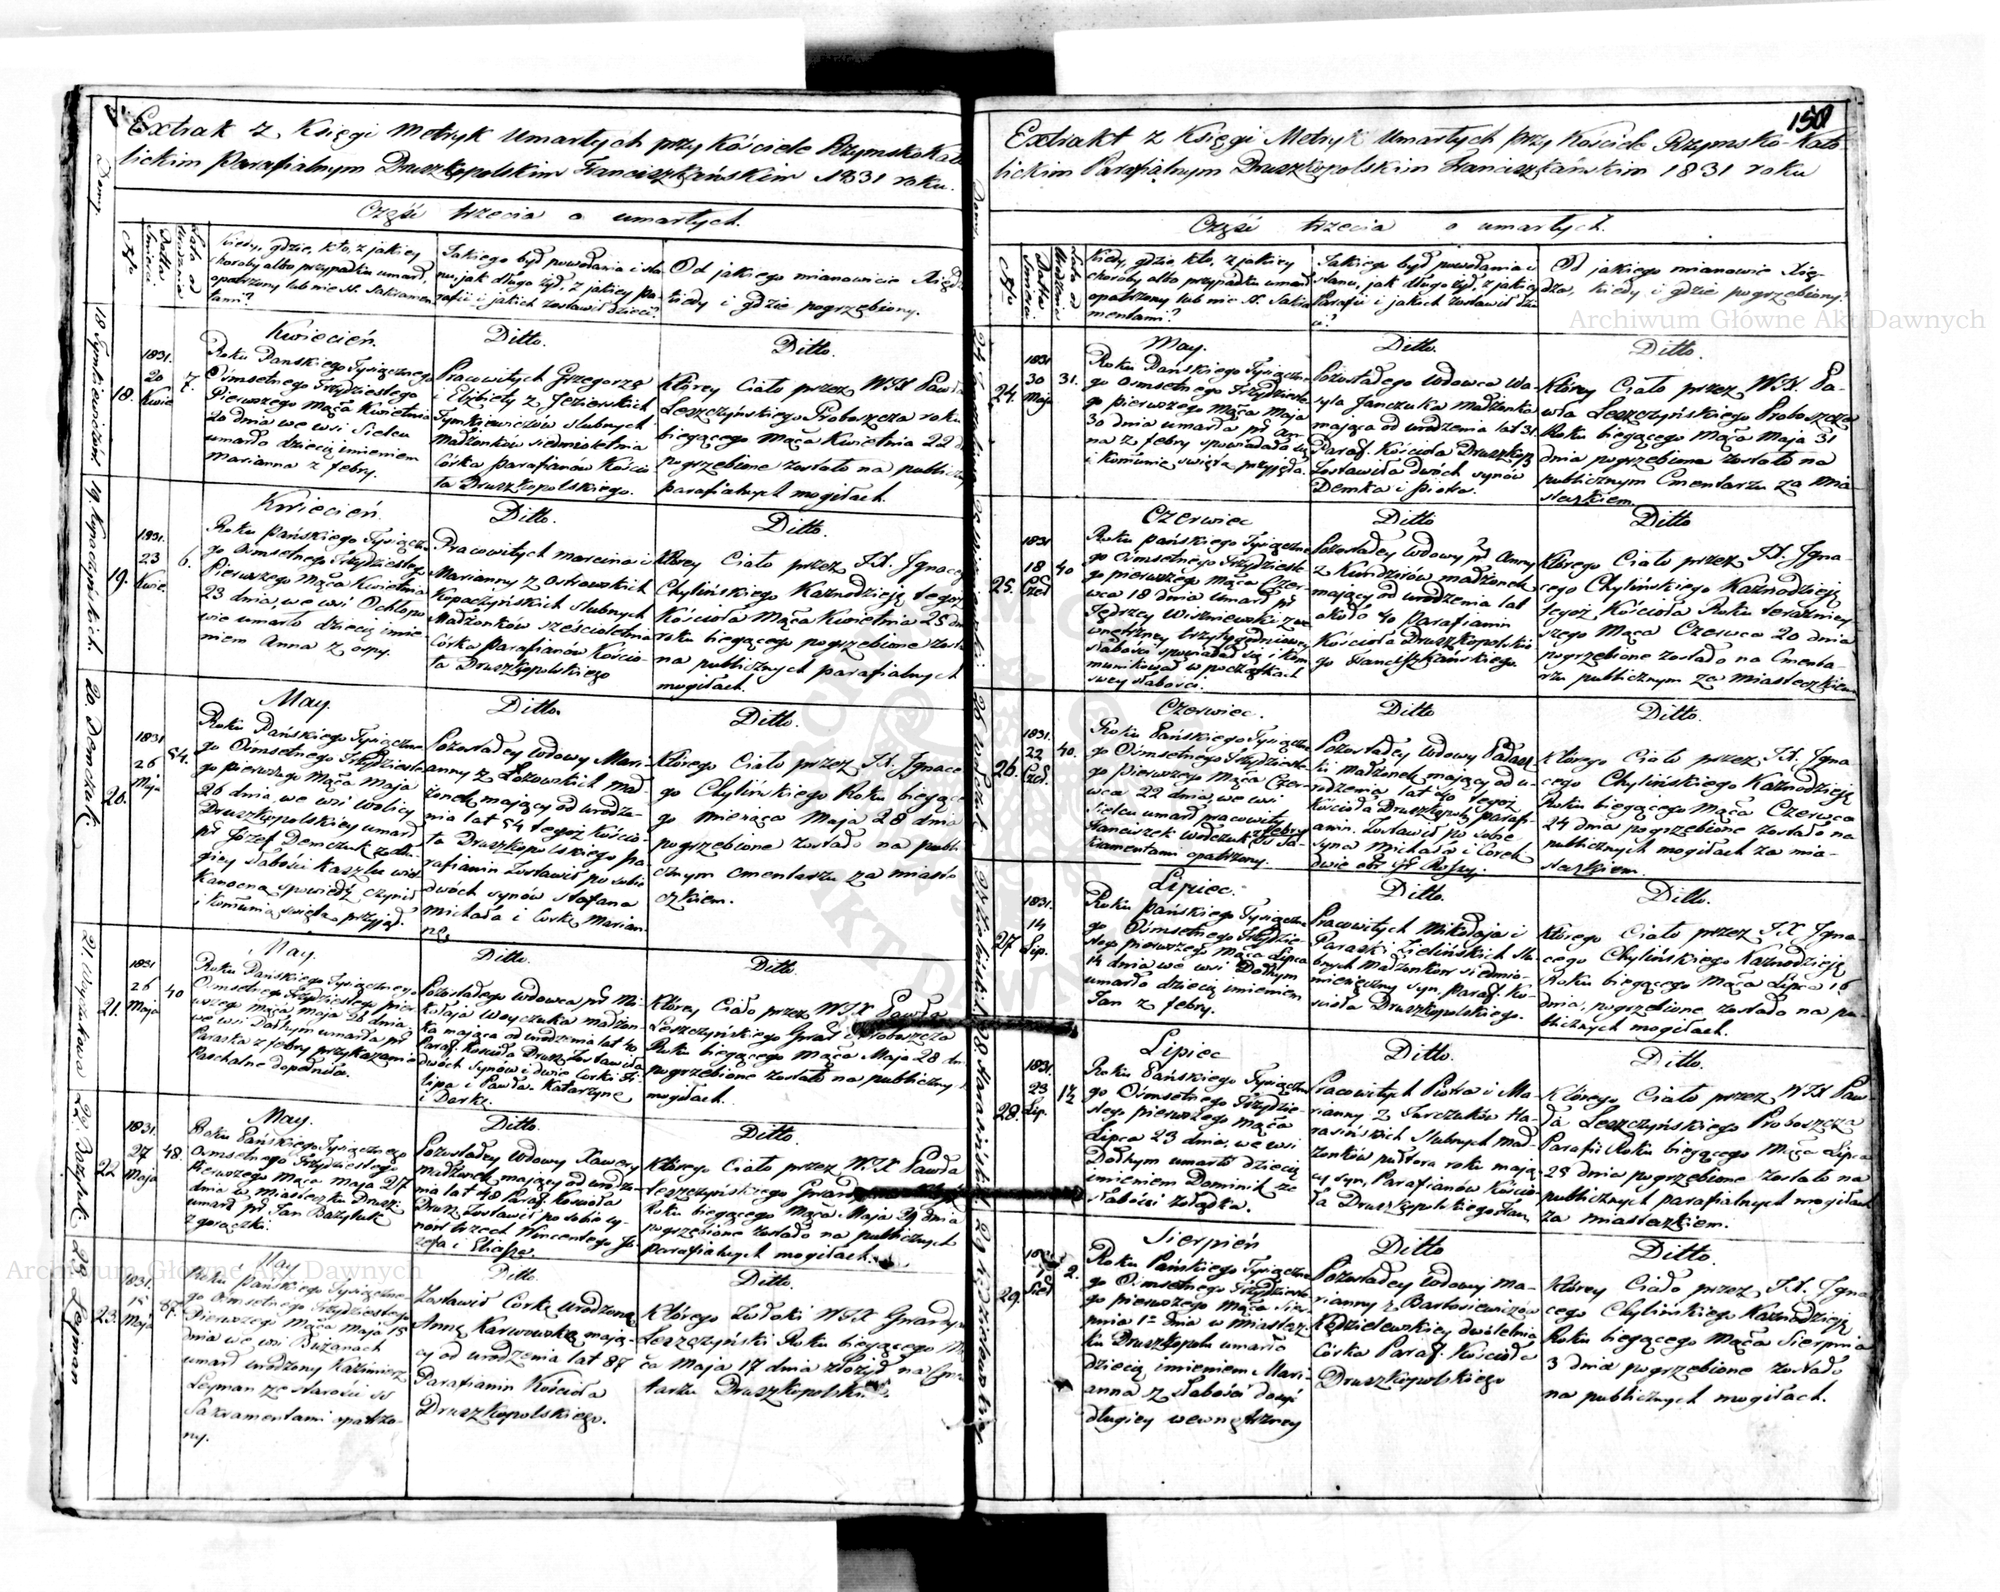 Extrakt z Księgi Metryk Umarłych przy Kościele Rzymsko Kato
lickim Parafialnym Druszkopolskim Franciszkańskim 1831 roku.
Część trzecia o umarłych.
Kiedy, gdzie, kto, z jakiey
choroby albo przypadku umarł,
opatrzony lub nie SS. Sakramen
tami?
Jakiego był powołania i sta
nu, jak długo żył, z jakiey Pa
rafii i jakich zostawił dzieci?
Od jakiego mianowicie Xiędza
kiedy i gdzie pogrzebiony.
18.
1831.
20
Kwie
7.
Kwiecień.
Roku Pańskiego Tysiącznego
Ośmsetnego Trzydziestego
Pierwszego Mąca Kwietnia
20 dnia we wsi Sielcu
umarło dziecię imieniem
Marianna z febry.
Ditto.
Pracowitych Grzegorza
i Elżbiety z Jezierskich
Tymkiewiczów slubnych
Małżonków siedmioletnia
Córka parafianów Kościo
ła Druszkopolskiego.
Ditto.
Którey Ciało przez WJX Pawła
Leszczyńskiego Proboszcza roku
biegącego Mąca Kwietnia 22 d
pogrzebione zostało na publiczn
parafialnych mogiłach.
19.
1831.
23
Kwie
6.
Kwiecień
Roku Pańskiego Tysiączne
go Ośmsetnego Trzydziestego
Pierwszego Mąca Kwietnia
23 dnia, we wsi Ochłopo
wie umarło dziecię imie
niem Anna z ospy.
Ditto.
Pracowitych Marcina i
Marianny z Ostrowskich
Kopaczyńskich slubnych
Małżonków sześcioletnia
Córka parafianów Kościo
ła Druszkopolskiego
Ditto.
Którey Ciało przez JX. Ignacego
Chylińskiego Kaznodzieję tegoż
Kościoła Mąca Kwietnia 25 dn
roku biegącego pogrzebione zosta
na publicznych parafialnych
mogiłach.
20.
1831
26
Maja
54.
May.
Roku Pańskiego Tysiączne
go Ośmsetnego Trzydzieste
go pierwszego Mąca Maja
26 dnia, we wsi Wolicy
Druszkopolskiey umarł
pr Józef Demczuk z dłu
giey słabości kaszlu wiel
kanocną spowiedź czynił
i komunią świętą przyjął.
Ditto.
Pozostałey wdowy Mari
anny z Łozowskich mał
żonek, mający od urodze
nia lat 54 tegoż Kościo
ła Druszkopolskiego pa
rafianin Zostawił po sobie
dwóch synów Stefana
Michała i Corkę Marian
nę.
Ditto.
Którego Ciało przez JX. Ignace
go Chylińskiego Roku biegące
go Miesiąca Maja 28 dnia
pogrzebione zostało na publi
cznym cmentarzu za miaste
czkiem.
21.
1831
26
Maja
40
May.
Roku Pańskiego Tysiącznego
Ośmsetnego Trzydziestego pier
wszego Mąca Maja 26 dnia,
we wsi Dołhym umarła pr
Paraska z febry przykazanie
Paschalne dopełniła.
Ditto.
Pozostałego wdowca pr Mi
kołaja Woyczuka małżon
ka mająca od urodzenia lat 40
Paraf. Kościoła Drusz. Zostawiła
dwóch Synów i dwie Corki Fi
lipa i Pawła. Katarzynę
i Darkę.
Ditto.
Którey Ciało przez WJX Pawła
Leszczyńskiego Gwar i Proboszcza
Roku biegącego Mąca Maja 28 dn
pogrzebione zostało na publiczny
mogiłach.
22.
1831.
27
Maja
48.
May.
Roku Pańskiego Tysiącznego
Ośmsetnego Trzydziestego
Pierwszego Mąca Maja 27
dnia w miasteczku Drusz:
umarł pr Jan Bazyluk
z gorączki.
Ditto.
Pozostałey Wdowy Xawery
małżonek mający od urodze
nia lat 48 Paraf. Kościoła
Drusz. Zostawił po sobie sy
nów trzech Wincentego Jó
zefa i Eliasza
Ditto.
Którego Ciało przez WJX Pawła
Leszczyńskiego Gward
Roku biegącego Mąca Maja 29 dnia
pogrzebione zostało na publicznych
parafialnych mogiłach.
23.
1831.
15
Maja
87.
May
Roku Pańskiego Tysiączne
go Ośmsetnego Trzydziestego
Pierwszego Mąca Maja 15
dnia we wsi Bużanach
umarł urodzony Kazimierz
Leyman ze starości SS
Sakramentami opatrzo
ny.
Ditto.
Zostawił Corkę urodzoną
Annę Karwowską mają
cy od urodzenia lat 87
Parafianin Kościoła
Druszkopolskiego.
Ditto.
Którego Zwłoki WJX Gwardyan
Leszczyński Roku biegącego Mą
ca Maja 17 dnia złożył na Cmen
tarzu Druszkopolskim
150
Extrakt z Księgi Metryk Umarłych przy Kościele Rzymsko-Kato
lickim Parafialnym Druszkopolskim Franciszkańskim 1831 roku
Część trzecia o umarłych.
Kiedy, gdzie, kto, z jakiey
choroby, albo przypadku umarł
opatrzony lub nie SS. Sakra
mentami?
Jakiego był powołania i
stanu, jak długo żył, z jakiey
Parafii i jakich zostawił dzie
ci?
Od jakiego mianowicie Xię
dza, kiedy i gdzie pogrzebiony?
24.
1831
30
Maja
31.
May.
Roku Pańskiego Tysiączne
go Ośmsetnego Trzydzieste
go pierwszego Mąca Maja
30 dnia umarła pr An
na z febry spowiadała się
i komunię świętą przyjęła.
Ditto.
Pozostałego wdowca Wa
syla Janczuka małżonka
mająca od urodzenia lat 31
Paraf. Kościoła Druszkop
Zostawiła dwóch synów
Demka i Piotra.
Ditto.
Którey Ciało przez W.X. Pa
wła Leszczyńskiego Proboszcza
Roku biegącego Mąca Maja 31
dnia pogrzebione zostało na
publicznym Cmentarzu za mia
steczkiem.
25.
1831
18
Czer
40
Czerwiec
Roku pańskiego Tysiączne
go Ośmsetnego Trzydzieste
go pierwszego Mąca Czer
wca 18 dnia umarł pr
Jędrzey Wiszniewski z we
wnętrzney trzytygodniowey
słabości spowiadał się i kom
munikował w początkach
swey słabości.
Ditto
Pozostałey Wdowy pr Anny
z Kundzirów małżonek
mający od urodzenia lat
około 40 Parafianin
Kościoła Druszkopolskie
go Franciszkańskiego.
Ditto
Którego Ciało przez JX. Igna
cego Chylińskiego Kaznodzieję
tegoż Kościoła Roku teraźniey
szego Mąca Czerwca 20 dnia
pogrzebione zostało na Cmenta
rzu publicznym za miasteczkiem
26.
1831.
22
Czer.
40.
Czerwiec.
Roku Pańskiego Tysiączne
go Ośmsetnego Trzydzieste
go pierwszego Mąca Czer
wca 22 dnia, we wsi
Sielcu umarł pracowity
Franciszek Wołczuk z febry SS Sa
kramentami opatrzony.
Ditto
Pozostałey wdowy Pałasz
ki małżonek, mający od u
rodzenia lat 40 tegoż
Kościoła Druszkopol: Parafi
anin. Zostawił po sobie
syna Michała i Corek
dwie
Ditto.
Którego Ciało przez JX. Igna
cego Chylińskiego Kaznodzieję
Roku biegącego Mąca Czerwca
24 dnia pogrzebione zostało na
publicznych mogiłach za mia
steczkiem.
27
1831.
14
Lip.
Lipiec.
Roku pańskiego Tysiączne
go Ośmsetnego Trzydzie
stego pierwszego Mąca Lipca
14 dnia we wsi Dołhym
umarło dziecię imieniem
Jan z febry.
Ditto.
Pracowitych Mikołaja i
Paraski Zielińskich slu
bnych Małżonków siedmio
mięsięczny syn, Paraf. Ko
ścioła Druszkopolskiego.
Ditto.
Którego Ciało przez JX Igna
cego Chylińskiego Kaznodzieję
Roku biegącego Mąca Lipca 16
dnia, pogrzebione zostało na pu
blicznych mogiłach.
28.
1831.
23
Lip.
1½
Lipiec
Roku Pańskiego Tysiączne
go Ośmsetnego Trzydzie
stego pierwszego Mąca
Lipca 23 dnia, we wsi
Dołhym umarło dziecię
imieniem Dominik ze
słabości żołądka.
Ditto.
Pracowitych Piotra i Ma
rianny z Surczuków Ha
rasińskich Slubnych Mał
żonków półtora roku mają
cy syn, Parafianów Kościo
ła Druszkopolskiego
Ditto.
Którego Ciało przez WJX Paw
ła Leszczyńskiego Proboszcza
Parafii Roku biegącego Mąca Lipca
25 dnia pogrzebione zostało na
publicznych parafialnych mogiłach
za miasteczkiem.
29.
1
Sier
2.
Sierpień
Roku Pańskiego Tysiączne
go Ośmsetnego Trzydzieste
go pierwszego Mąca Sier
pnia 1 dnia w miastecz
ku Druszkopolu umarło
dziecię imieniem Mari
anna z słabości dosyć
długiey wewnętrzney
Ditto
Pozostałey wdowy Ma
rianny z Bartosiewiczów
Kędzielewskiey dwóletnia
Córka Paraf. Kościoła
Druszkopolskiego
Ditto.
Którey Ciało przez JX. Igna
cego Chylińskiego Kaznodzieję
Roku biegącego Mąca Sierpnia
3 dnia pogrzebione zostało
na publicznych mogiłach.
Archiwum Główne Akt Dawnych
Archiwum Główne Akt Dawnych